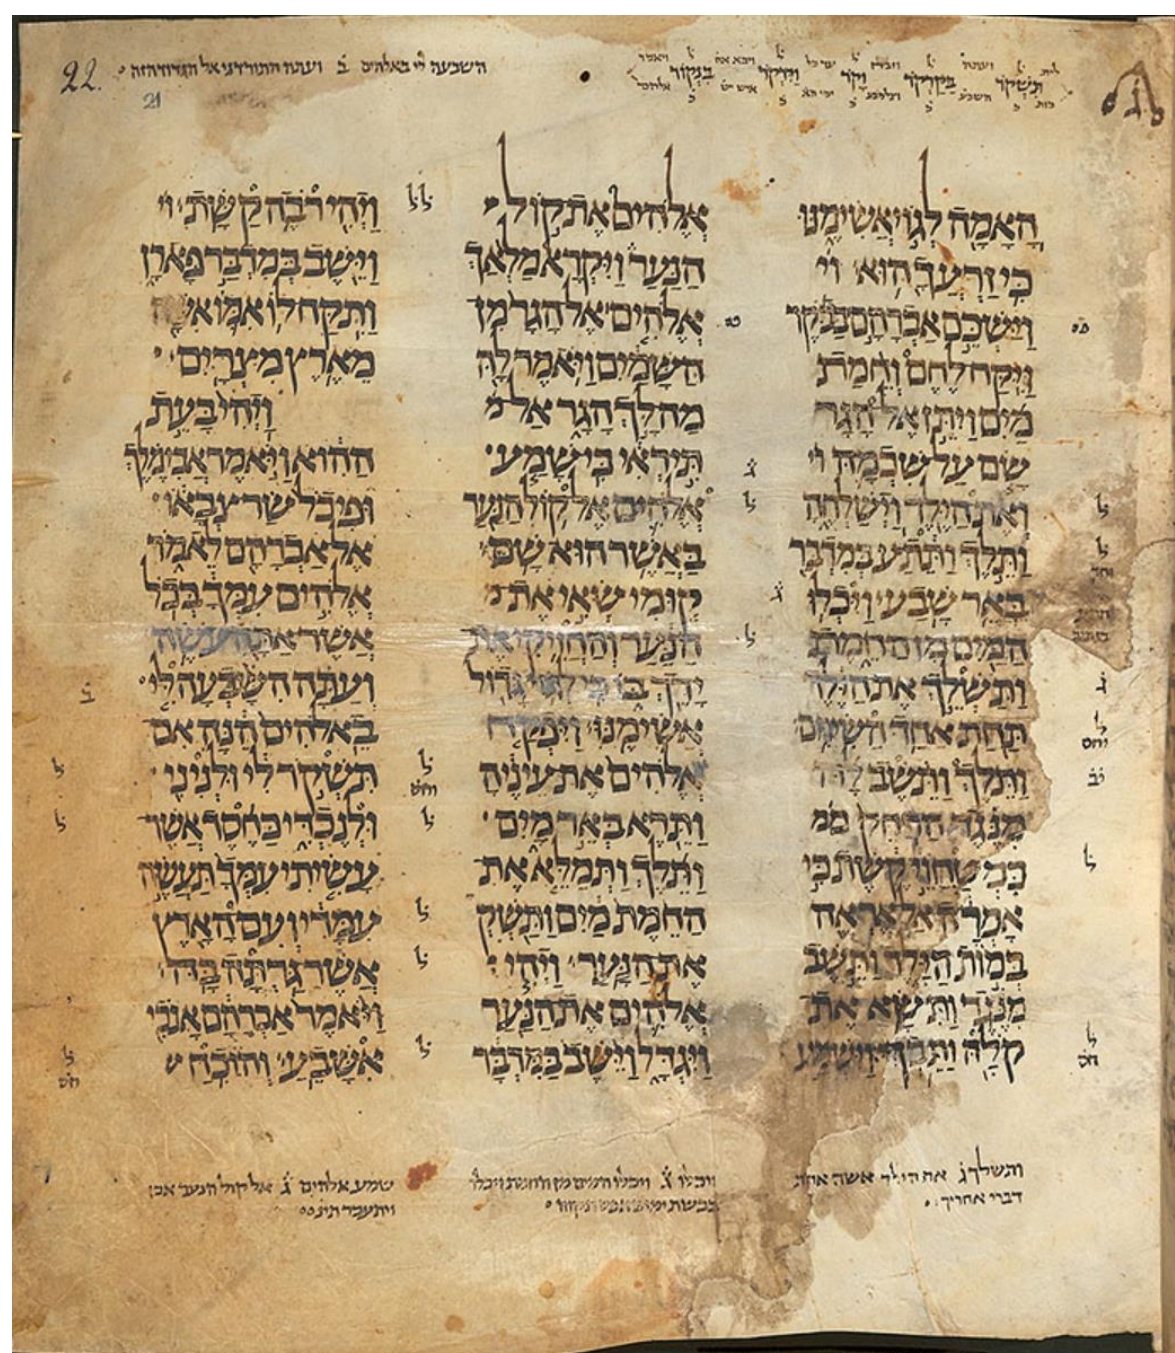 22.
21
השבעה לי באלהים ב ועתה התורדני אל הגדוד הזה
האמה לגוי אשימנו
כי זרעך הוא
וישכם אברהם בבקר
ויקח לחם וחמת
מים ויתן אל הגר
שם על שכמה
ואת הילד וישלחה
ותלך ותתע במדבר
באר שבע ויכלו
המים מן החמת
ותשלך את הילד
תחת אחד השיחם
ותלך ותשב לה
מנגד הרחק
כמטחוי קשת כי
אמרה אל אראה
במות הילד ותשב
מנגד ותשא את
קלה ותבך וישמע
אלהים את קול
הנער ויקרא מלאך
אלהים אל הגר מן
השמים ויאמר לה
מה לך הגר אל
תיראי כי שמע
אלהים אל קול הנער
באשר הוא שם
קומי שאי את
הנער והחזיקי את
ידך בו כי לגוי גדול
אשימנו ויפקח
אלהים את עיניה
ותרא באר מים
ותלך ותמלא את
החמת מים ותשק
את הנער ויהי
אלהים את הנער
ויגדל וישב במדבר
ויהי רבה קשת
וישב במדבר פארן
ותקח לו אמו אשה
מארץ מצרים
ויהי בעת
ההוא ויאמר אבימלך
ופיכל שר צבאו
אל אברהם לאמר
אלהים עמך בכל
אשר אתה עשה
ועתה השבעה לי
באלהים הנה אם
תשקר לי ולניני
ולנכדי כחסד אשר
עשיתי עמך תעשה
עמדי ועם הארץ
אשר גרתה בה
ויאמר אברהם אנכי
אשבע והוכח
ותשלך ג את הילד אשה אחת
דברי אחריך
ויכלו ג ויכלו המים מן החמת ויכלו
שמע אלהים ג אל קול הנער אכן